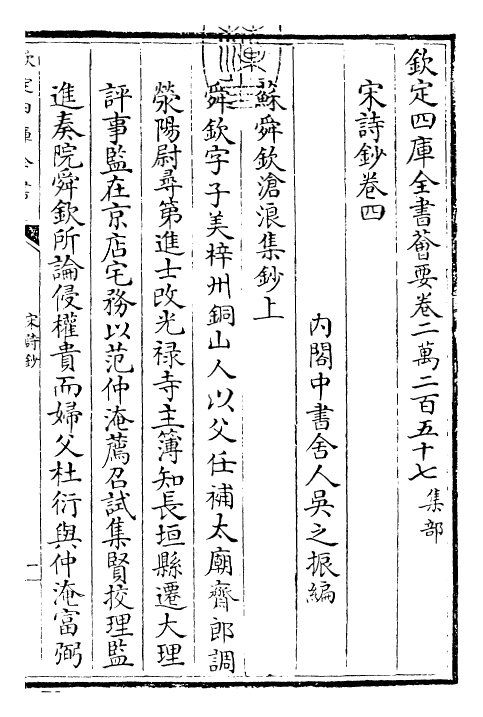 欽定四庫全書薈要卷二萬二百五十七 集部
宋詩鈔卷四
內閣中書舍人吳之振編
蘇舜欽滄浪集鈔上
舜欽字子美梓州銅山人以父任補太廟齋郎調
滎陽尉尋第進士改光祿寺主簿知長垣縣遷大理
評事監在京店宅務以范仲淹薦召試集賢挍理監
進奏院舜欽所論侵權貴而婦父杜衍與仲淹富弼
欽定四庫全書
宋詩鈔
一